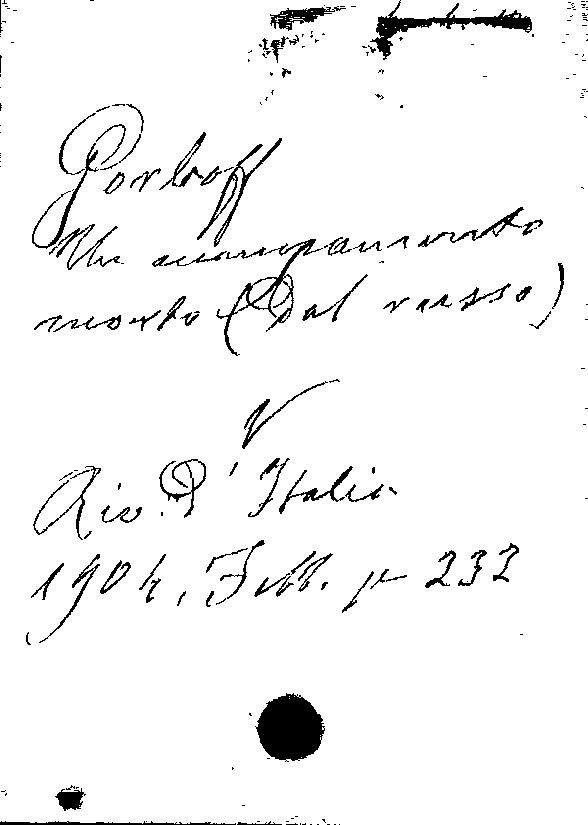 Gorkoff
Un accampamento
morto (Dal russo)
V
Riv. D'Italia
1904, Febb. p 232